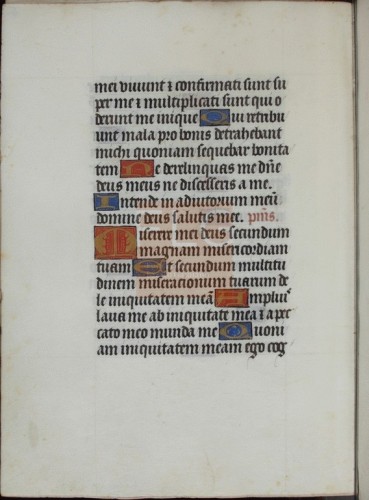 mei viuunt ⁊ confirmati sunt su
per me ⁊ multiplicati sunt qui o
derunt me inique Qui retribu
unt mala pro bonis detrahebant
michi quoniam sequebar bonita
tem Ne derelinquas me dñe
deus meus ne discesseris a me.
Intende in adiutorium meũ
domine deus salutis mee. pſmꝰ.
Miserere mei deus secundum
magnam misericordiam
tuam Et secundum multitu
dinem miserationum tuarum de
le iniquitatem meã Ampliuꝰ
laua me ab iniquitate mea ⁊ a pec
cato meo munda me Quoni
am iniquitatem meam ego cog